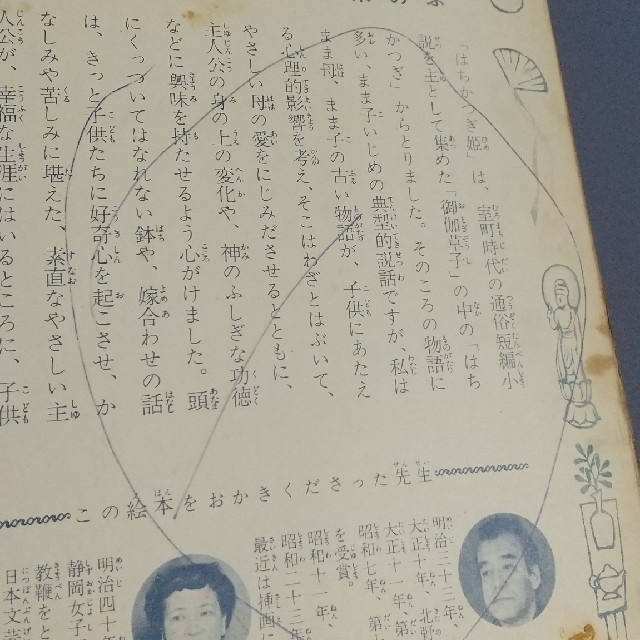 「はちかつぎ姫」は、室町時代の通俗短編小
説を主として集めた「御伽草子」の中の「はち
かつぎ」からとりました。そのころの物語に
多い、まま子いじめの典型的説話ですが、私は
まま母、まま子の古い物語が、子供にあたえ
る心理的影響を考え、そこはわざとはぶいて、
やさしい母の愛をにじみださせるとともに、
主人公の身の上の変化や、神のふしぎな功徳
などに興味を持たせるよう心がけました。頭
にくっついてはなれない鉢や、嫁合わせの話
は、きっと子供たちに好奇心を起こさせ、か
なしみや苦しみに堪えた、素直なやさしい主
人公が、幸福な生涯にはいるところに、子供
この絵本をおかきくださった先生
明治二十三年、
大正十年、北野
大正十一年、第
昭和七年、第十
を受賞。
昭和十一年、
昭和二十三年
最近は挿画に
明治四十年
静岡女子
教鞭をと
日本文芸